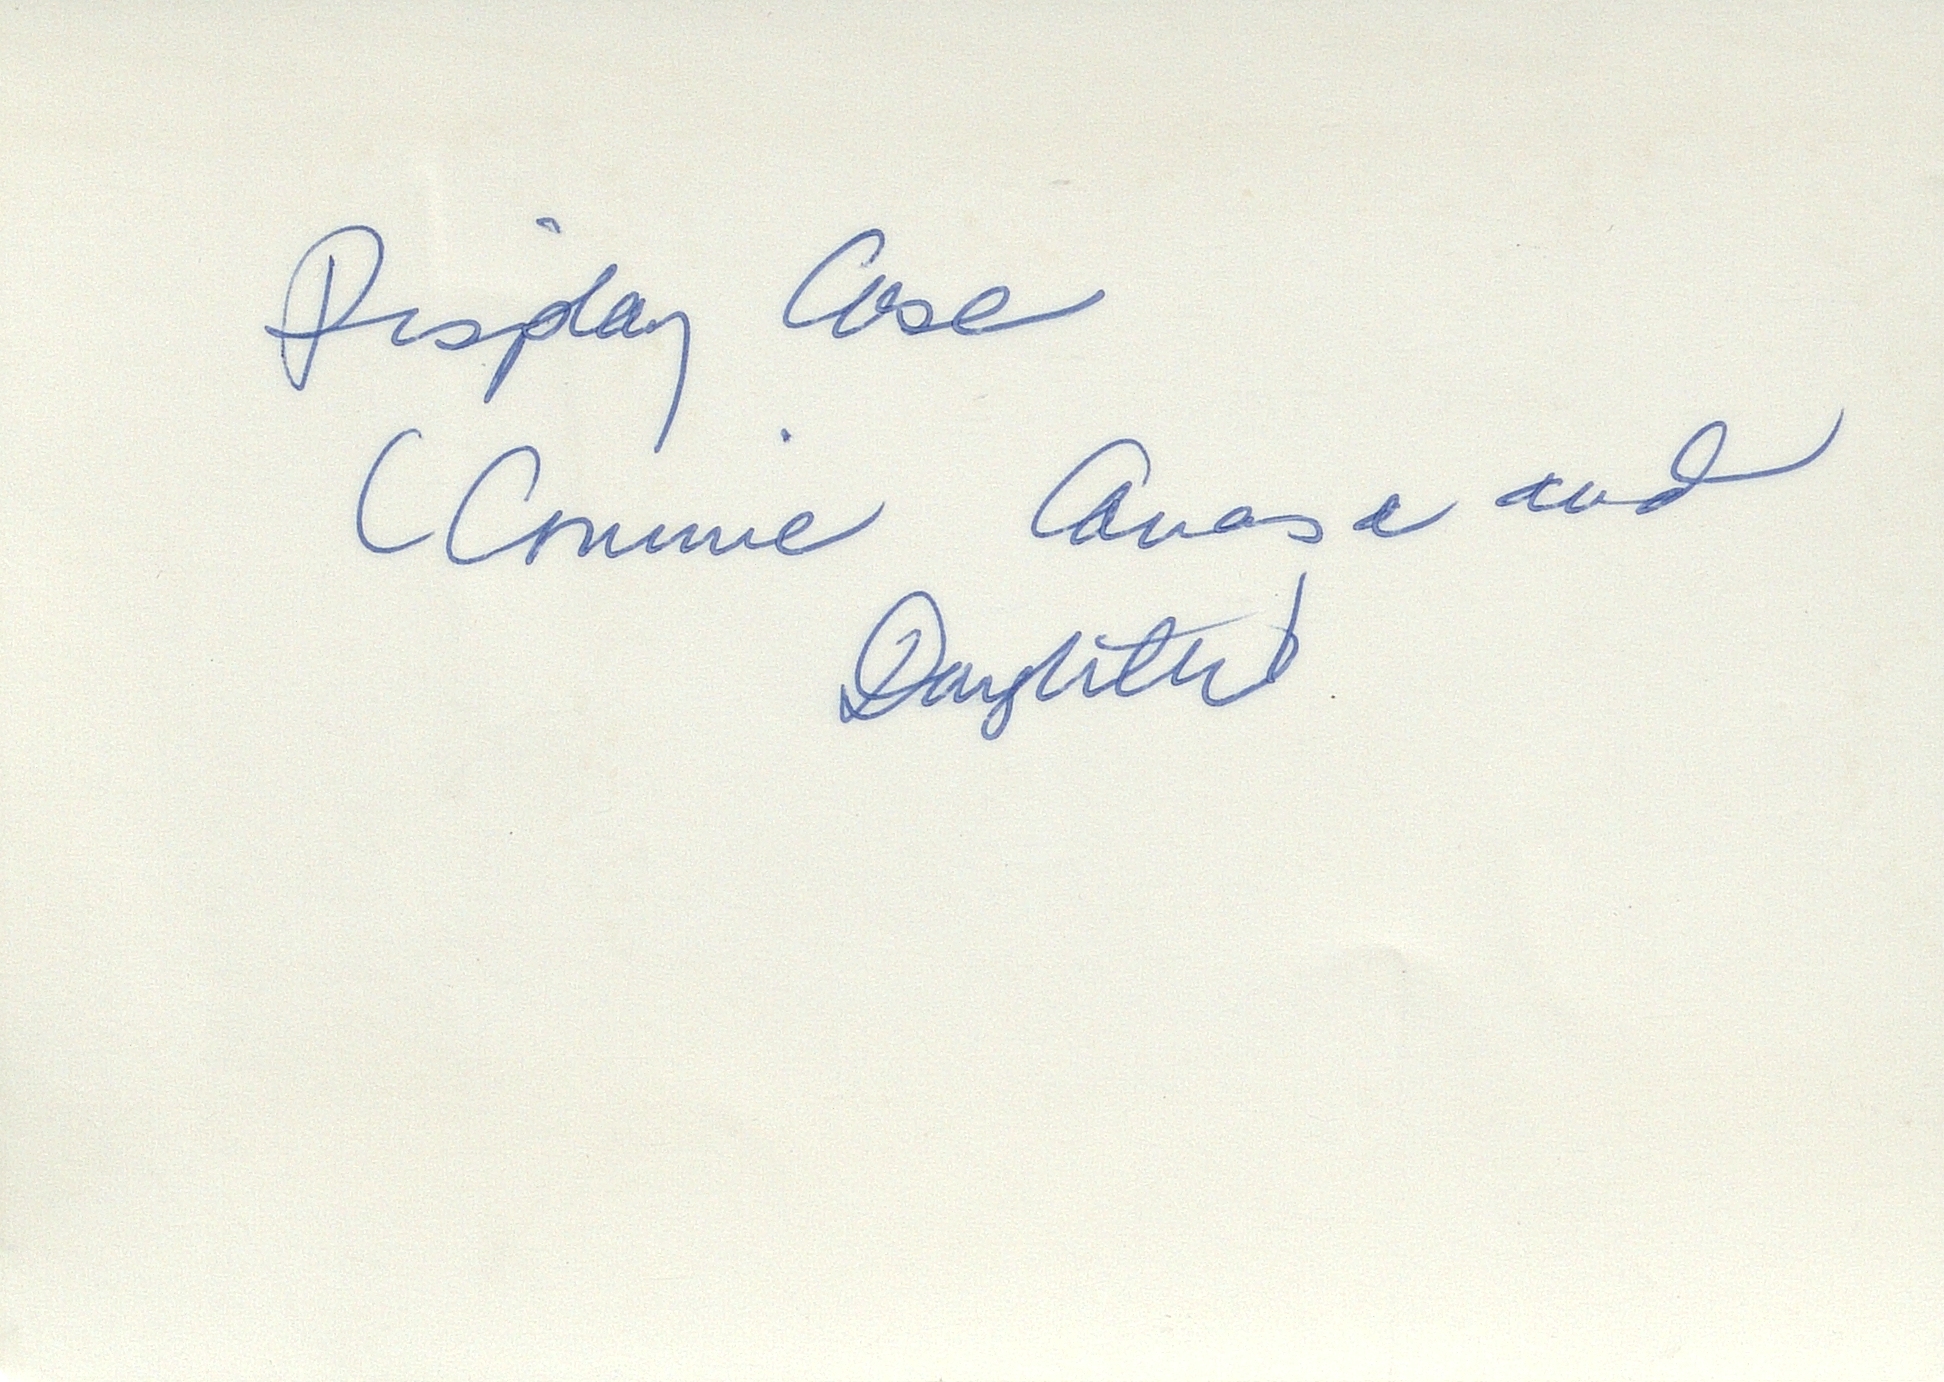 Display Case
(Connie Canasa and
Daughter)